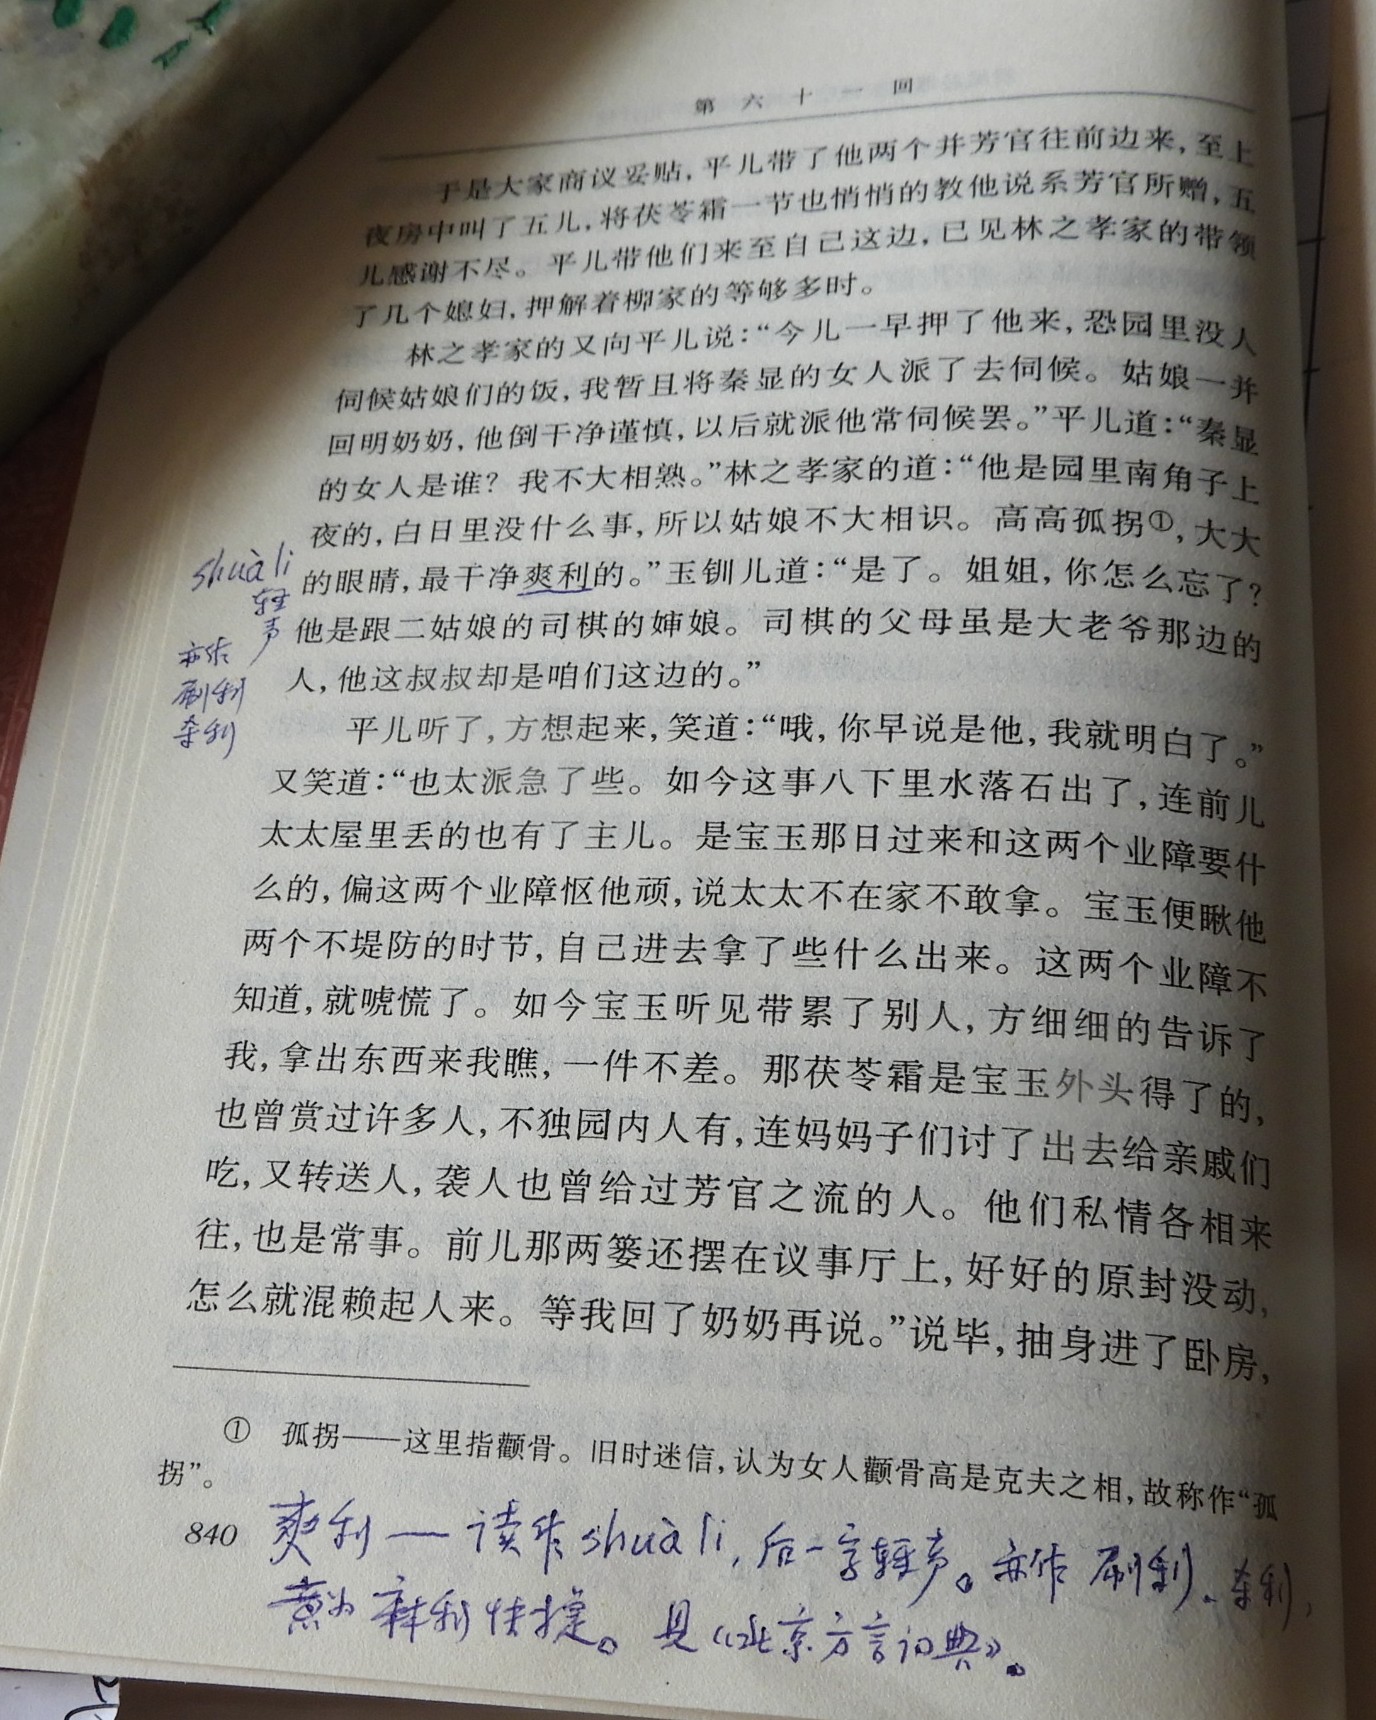 第六十一回
于是大家商议妥贴，平儿带了他两个并芳官往前边来，至上
夜房中叫了五儿，将茯苓霜一节也悄悄的教他说系芳官所赠，五
儿感谢不尽。平儿带他们来至自己这边，已见林之孝家的带领
了几个媳妇，押解着柳家的等够多时。
林之孝家的又向平儿说：“今儿一早押了他来，恐园里没人
伺候姑娘们的饭，我暂且将秦显的女人派了去伺候。姑娘一并
回明奶奶，他倒干净谨慎，以后就派他常伺候罢。”平儿道：“秦显
的女人是谁？我不大相熟。”林之孝家的道：“他是园里南角子上
夜的，白日里没什么事，所以姑娘不大相识。高高孤拐①，大大
的眼睛，最干净爽利的。”玉钏儿道：“是了。姐姐，你怎么忘了？
他是跟二姑娘的司棋的婶娘。司棋的父母虽是大老爷那边的
人，他这叔叔却是咱们这边的。”
平儿听了，方想起来，笑道：“哦，你早说是他，我就明白了。”
又笑道：“也太派急了些。如今这事八下里水落石出了，连前儿
太太屋里丢的也有了主儿。是宝玉那日过来和这两个业障要什
么的，偏这两个业障怄他顽，说太太不在家不敢拿。宝玉便瞅他
两个不堤防的时节，自己进去拿了些什么出来。这两个业障不
知道，就唬慌了。如今宝玉听见带累了别人，方细细的告诉了
我，拿出东西来我瞧，一件不差。那茯苓霜是宝玉外头得了的，
也曾赏过许多人，不独园内人有，连妈妈子们讨了出去给亲戚们
吃，又转送人，袭人也曾给过芳官之流的人。他们私情各相来
往，也是常事。前儿那两篓还摆在议事厅上，好好的原封没动，
怎么就混赖起人来。等我回了奶奶再说。”说毕，抽身进了卧房，
shuàli
轻
声
亦作
刷利
㕞利
① 孤拐——这里指颧骨。旧时迷信，认为女人颧骨高是克夫之相，故称作“孤
拐”。
840
爽利—读作shuàli，后一字轻声。亦作刷利、㕞利，
意为麻利快捷。见《北京方言词典》。